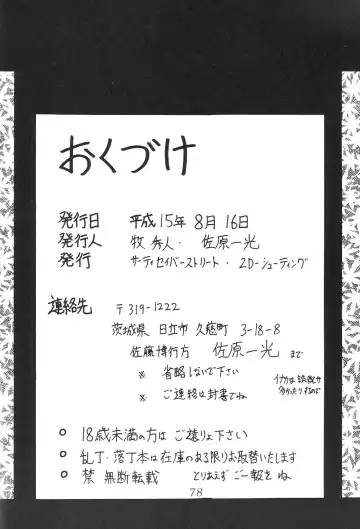 おくづけ
発行日 平成15年8月16日
発行人 牧秀人・佐原一光
発行 サーティセイバーストリート・2D-シューティング
連絡先 〒319-1222
茨城県 日立市 久慈町 3-18-8
佐藤博行方 佐原一光 まで
※ 省略しないで下さい
※ ご連絡は封書でね
イナカは誤配が多かったりするので
○ 18歳未満の方は ご遠りょ下さい
○ 乱丁・落丁本は在庫のある限りお取替いたします
○ 禁 無断転載 とりあえず ご一報を ね
78